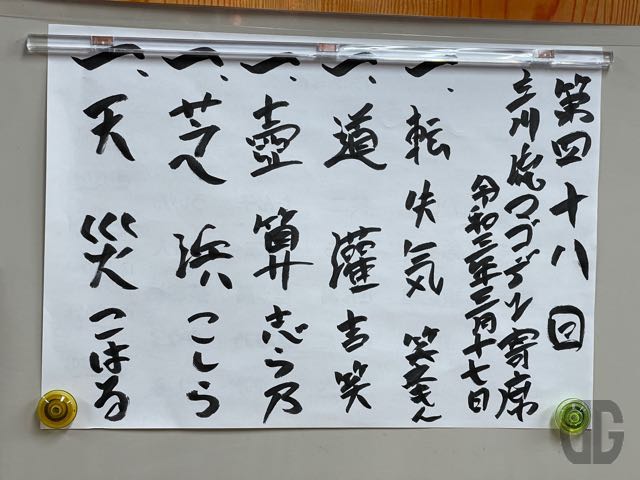 第四十八回
立川流マゴデシ寄席
令和三年三月十七日
一、転失気 笑えもん
一、道灌 吉笑
一、壺算 志ら乃
一、芝浜 こしら
一、天災 こはる
DG